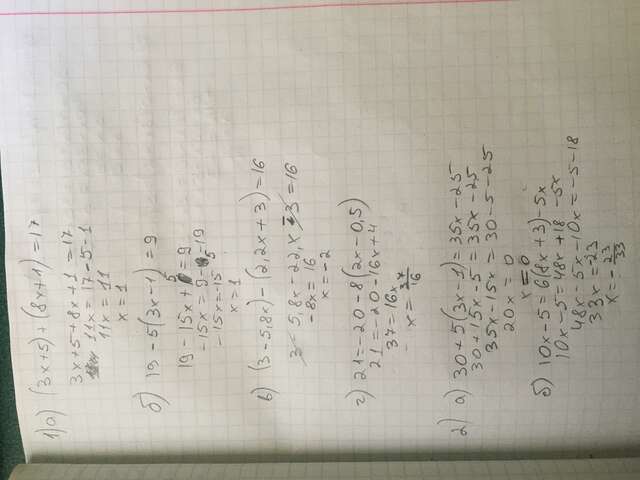 1) а) (3x+5)+(8x+1)=17
3x+5+8x+1=17
11x=17-5-1
11x=11
x=1
б) 19-5(3x-1)=9
19-15x+5=9
-15x=9-19-5
-15x=-15
x=1
в) (3-5,8x)-(2,2x+3)=16
3-5,8x-22,x-3=16
-8x=16
x=-2
г) 21=-20-8(2x-0,5)
21=-20-16x+4
37=16x
x=37/16
2) а) 30+5(3x-1)=35x-25
30+15x-5=35x-25
35x-15x=30-5-25
20x=0
x=0
б) 10x-5=6(8x+3)-5x
10x-5=48x+18-5x
48x-5x-10x=-5-18
33x=23
x=-23/33